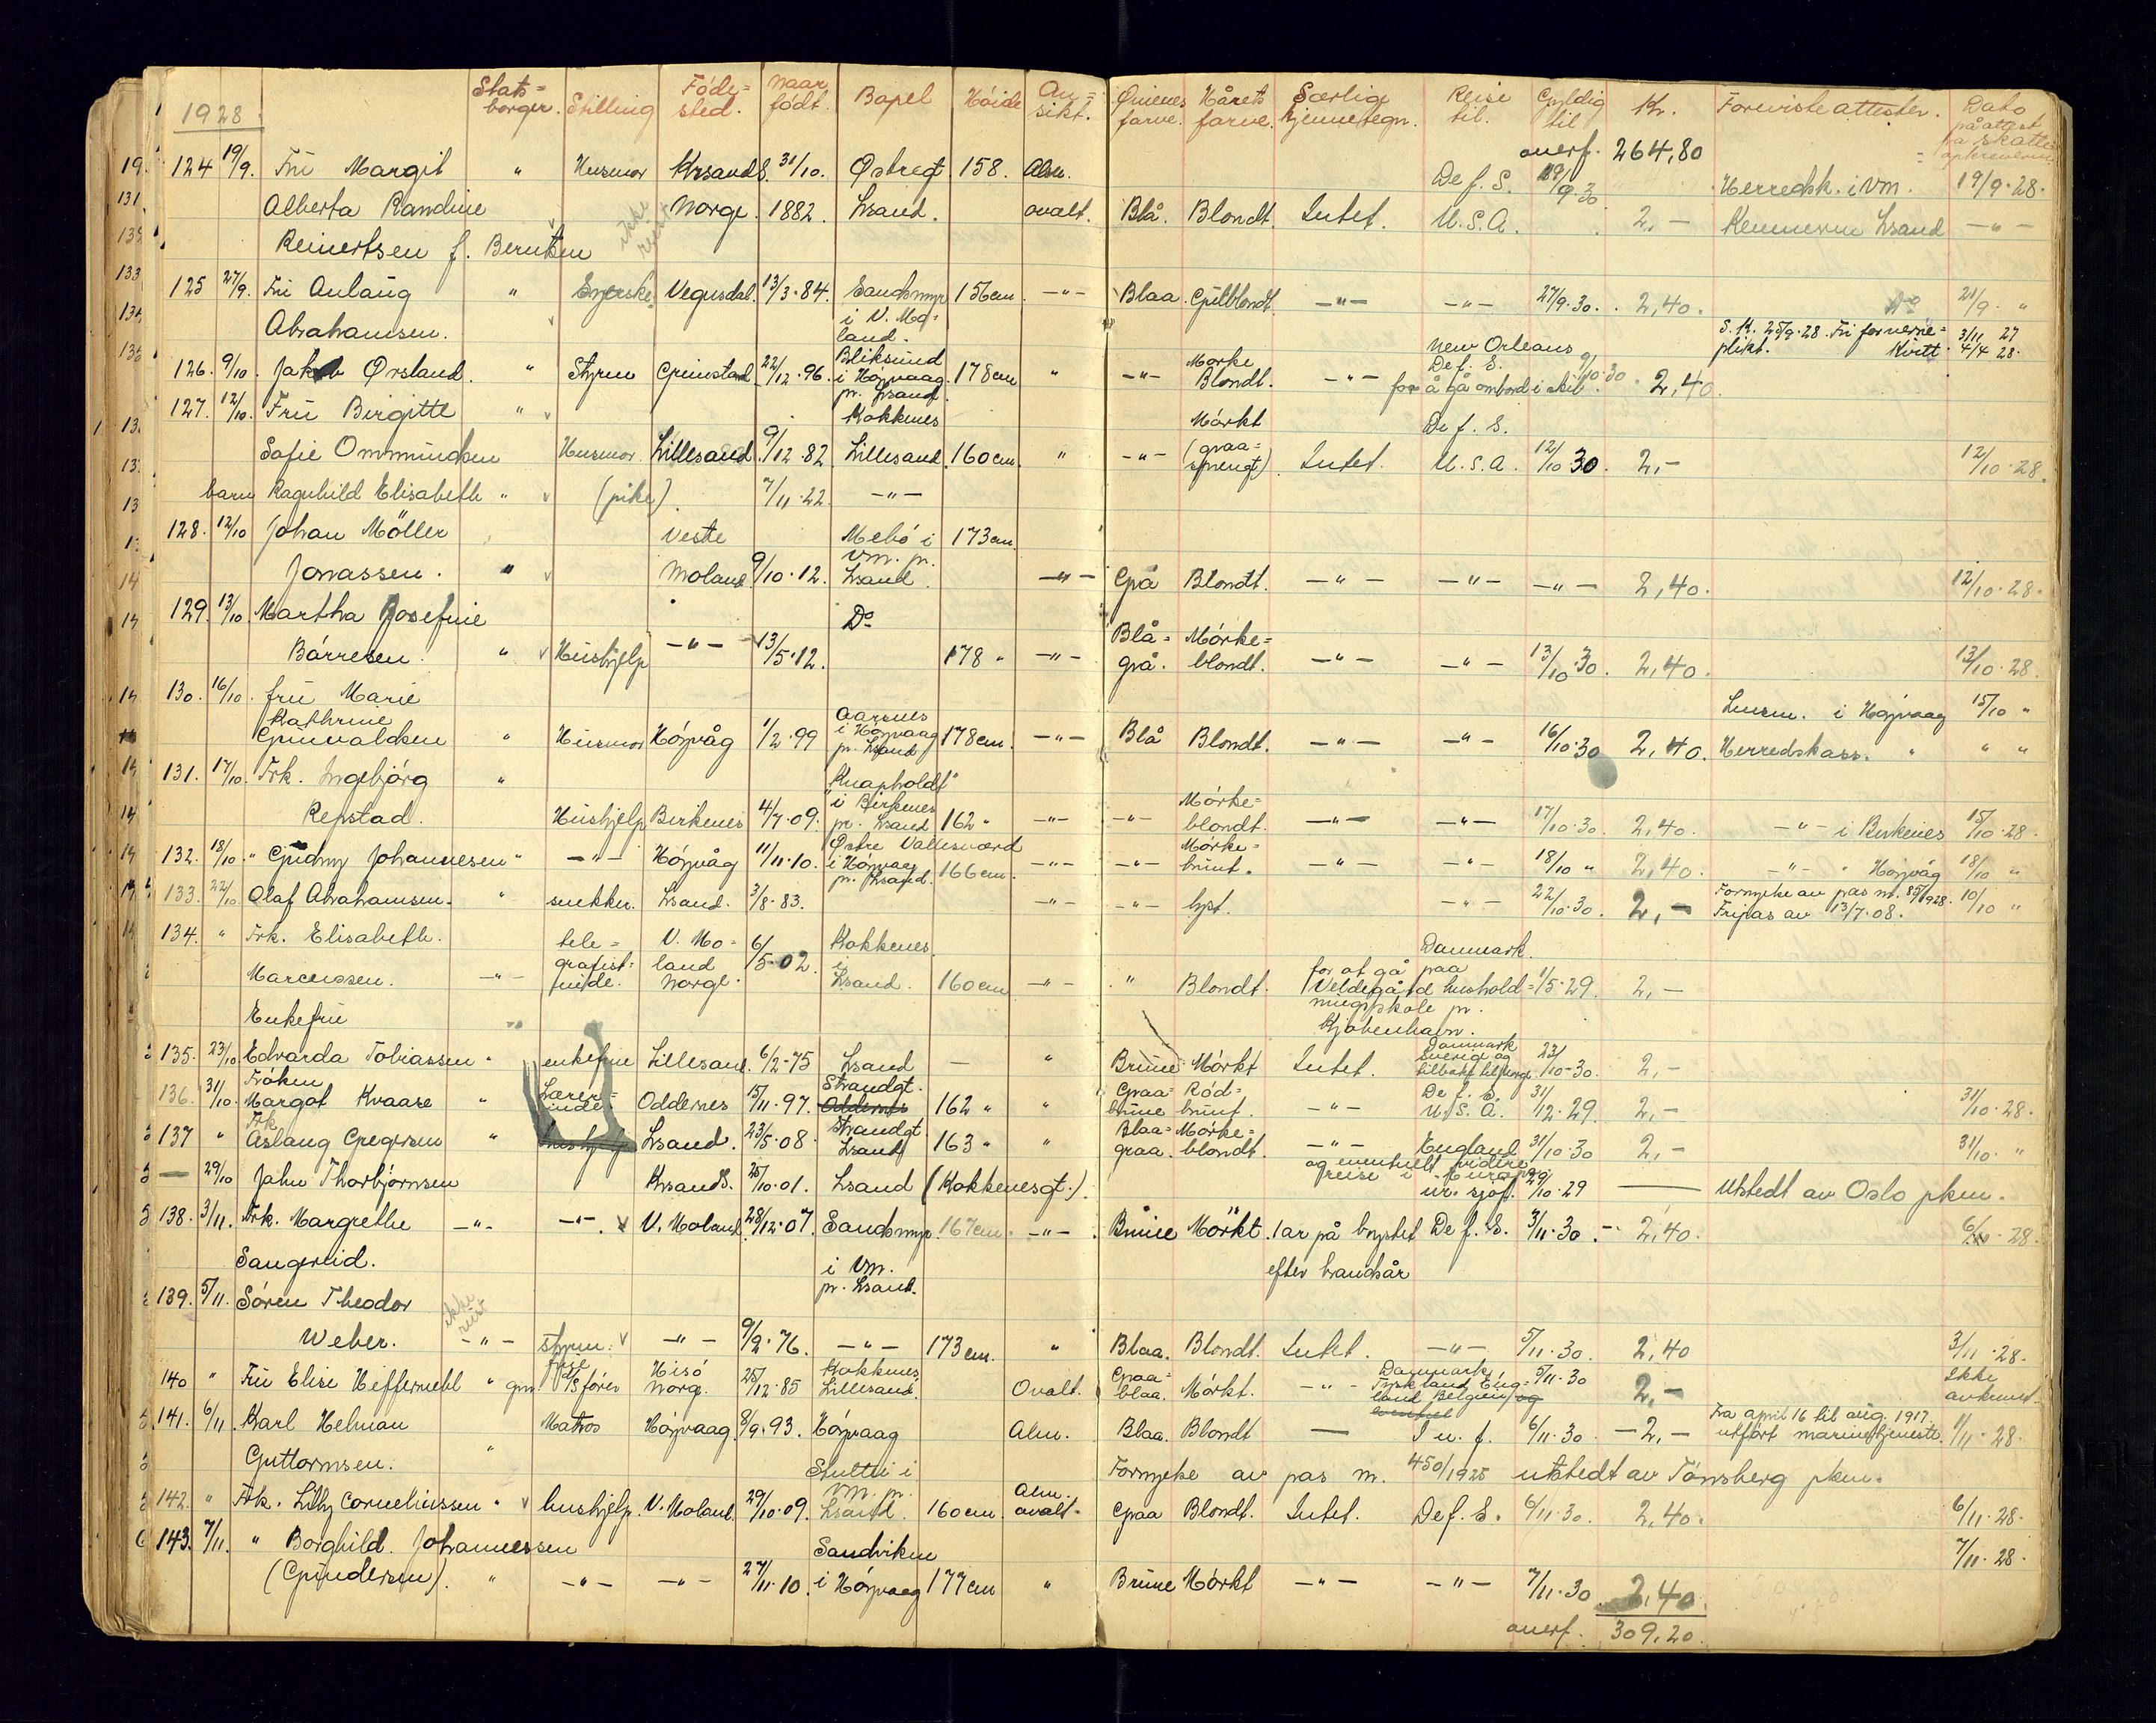 1928. Stats= borger. Stilling Föde= sted. Naar födt. Bopel Höide An= sikt. Öinenes farve. Hårets farve. Særlige kjennetegn. Reise til. Gyldig til Kr. Foreviste attester. Dato på attest fra skatte opkreveren
overf. 264,80
124 19/9. Fru Margit " Husmor KrsandS. 31/10. Østregt 158. Alm. De f. S. 19/9 30 Herredsk. i Vm. 19/9.28.
Alberta Randine Norge. 1882. Lsand. ovalt. Blå. Blondt. Intet. U.S.A. 2,- Kemneren Lsand -"-
Reinertsen f. Berntsen ikke reist
125 27/9. Fru Aulaug " Syerske Vegusdal. 13/3.84. Sandsmyr 156cm. -"- Blaa. Gulblondt. -"- -"- 27/9.30. 2,40. Do 21/9. "
Abrahamsen. i V. Mo= land.
S.K. 25/9.28. Fri for verne= plikt. Kvitt. 3/11 27 4/4 28.
126. 9/10. Jakob Ørsland. " Styrm Grimstad 22/12.96. Bliksund i Høvaag pr. Lsand. 178cm " -"- Mørke Blondt. -"- New Orleans De f. S. for å gå ombord i skib 9/10.30. 2,40.
127. 12/10. Fru Birgitte " Kokkenes Mörkt De f. S.
Sofie Ommundsen Husmor. Lillesand. 9/12.82 Lillesand. 160cm. " -"- (graa= sprengt) Intet. U.S.A. 12/10 30. 2,- 12/10.28.
barn Ragnhild Elisabeth " (pike). 7/11.22. -"-
128. 12/10 Johan Möller Vestre Mebö i 173cm.
Jonassen. " Moland. 9/10.12. Vm. pr. Lsand. -"- Grå Blondt. -"- -"- -"- 2,40. 12/10.28.
129. 13/10. Martha Josefine Do
Börresen. " Hushjelp -"- 13/5.12. 178 " -"- Blå= grå. Mörke= blondt. -"- -"- 13/10 30. 2,40. 13/10.28.
130. 16/10. Fru Marie Lensm. i Høvaag 15/10 "
Kathrine Grunvaldsen " Husmor Høvåg 1/2.99 Aarsnes i Høvaag pr. Lsand 178cm. -"- Blå Blondt. -"- -"- 16/10.30 2,40. Herredskass. " " "
131. 17/10. Frk. Ingebjörg " "Knapholdt"
Repstad. Hushjelp Birkenes 4/7.09. i Birkenes pr. Lsand 162 " -"- -"- Mörke= blondt. -"- -"- 17/10.30. 2,40. -"- i Birkenes 15/10.28.
132. 18/10. " Gudny Johannesen " -"- Høvåg 11/11.10. Østre Vallesværd i Høvaag pr. Lsand. 166cm. -"- -"- Mörke= brunt. -"- -"- 18/10 " 2,40. -"- " Høvåg 18/10 "
133. 22/10 Olaf Abrahamsen. " snekker. Lsand. 3/8.83. -"- -"- lyst. -"- 22/10.30. 2,- Fornyelse av pas nr. 85/1928. Fripas av 13/7.08. 10/10 "
134. " Frk. Elisabeth. tele= V. Mo= 6/5.02. Kokkenes Danmark.
Marcussen. -"- grafist= inde. land Norge. i Lsand. 160cm -"- " Blondt. for at gå paa Veldegård hushold= ningsskole pr. Kjöbenhavn. 1/5.29. 2,-
Enkefru
135. 23/10 Edvarda Tobiassen " enkefrue Lillesand. 6/2-75 Lsand - " Brune Mörkt Intet. Danmark Sverige og tilbake til Norge 23/10-30. 2,-
136. 31/10. Fröken Margot Kvaase " Lærer= inde. Oddernes 15/11.97. Strandgt. Oddernes 162 " " Graa= brune Röd= brunt. -"- De f. S. U.S.A. 31/12.29. 2,- 31/10.28.
137 " Frk. Aslaug Gregersen " hushjelp Lsand. 23/5.08. Strandgt. Lsand 163 " " Blaa= graa. Mörke= blondt. -"- England og eventuelt videre reise i Europa 31/10.30 2,- 31/10. "
— 29/10 John Thorbjörnsen KrsandS. 25/10.01. Lsand (Kokkenesgt.). ur. sjöf. 29/10.29 — Utstedt av Oslo pkm.
138. 3/11. Frk. Margrethe -"- -"- V. Moland. 28/12.07. Sandsmyr. 167cm. -"- Brune Mörkt. 1 ar på brystet De f. S. 3/11.30. - 2,40. 6/10.28.
Sangereid. i Vm. pr. Lsand. efter brandsår
139. 5/11. Sören Theodor ikke reist
Weber. -"- styrm. -"- 9/2.76. -"- 173cm. " Blaa. Blondt. Intet. -"- 5/11.30. 2,40 3/11.28.
140 " Fru Elise Heffermehl " Hisö Norg. 25/12.85 Kokkenes Lillesand. Ovalt. Graa= blaa. Mörkt. -"- Danmark Tyskland Eng= land Belgien og 5/11.30 2,- ikke avkrevet.
141. 6/11. Karl Helman Matros Høvaag. 8/9.93. Høvaag Alm. Blaa. Blondt — I u. f. 6/11.30. -2,- Fra april 16 til aug. 1917. utført marinetjeneste. 1/11.28.
Guttormsen. " Fornyelse av pas nr. 450/1925 utstedt av Tönsberg pkm.
142. " Frk. Lilly Corneliussen " hushjelp. V. Moland. 29/10.09. i Vm. pr. Lsand. 160cm. Alm. ovalt. Graa Blondt. Intet. De f. S. 6/11.30. 2,40. 6/11.28.
143. 7/11. " Borghild Johannessen Sandviken 7/11.28.
(Gundersen). " -"- -"- 27/11.10. i Høvaag 177cm " Brune Mörkt -"- -"- 7/11.30 2,40.
overf. 309,20.